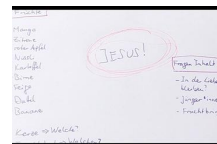 Früchte
Mango
Zitrone
roter Apfel
Nüsse
Kartoffel
Birne
Feige
Dattel
Banane
Kerne => Welche?
Welche?
JESUS!
Fragen Inhalt
- In der Liebe
bleiben?
- Jünger
- Frucht